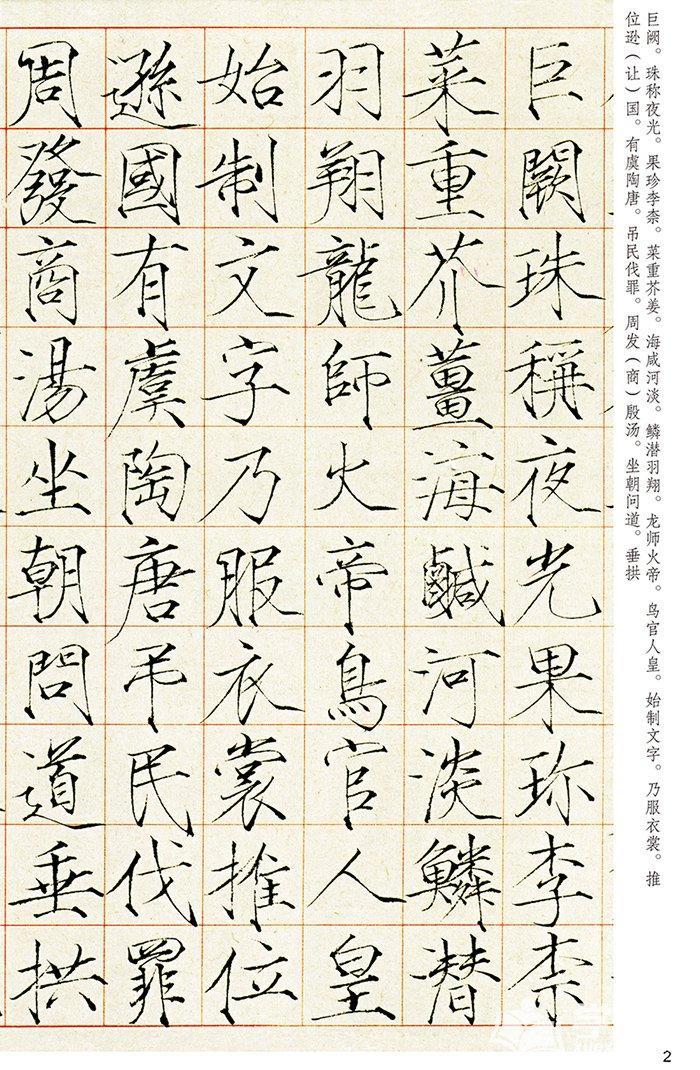 巨阙。珠称夜光。果珍李柰。菜重芥姜。海咸河淡。鳞潜羽翔。龙师火帝。鸟官人皇。始制文字。乃服衣裳。推
位逊（让）国。有虞陶唐。吊民伐罪。周发（商）殷汤。坐朝问道。垂拱
巨闕珠稱夜光果珎李柰
菜重芥薑海鹹河淡鱗潜
羽翔龍師火帝鳥官人皇
始制文字乃服衣裳推位
遜國有虞陶唐吊民伐罪
周發商湯坐朝問道垂拱
2